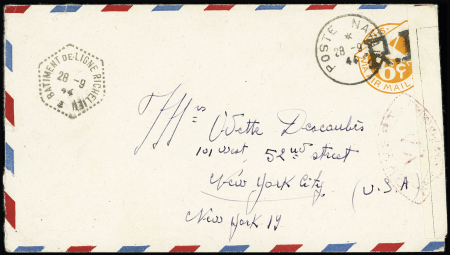 BATIMENT DE LIGNE RICHELIEU
28-9
44
*
POSTE NAV
*
28-9
44
R.F
AIR MAIL
Mrs Odette Descaubès
101 West 52nd street
New York City (U.S.A)
New York 19